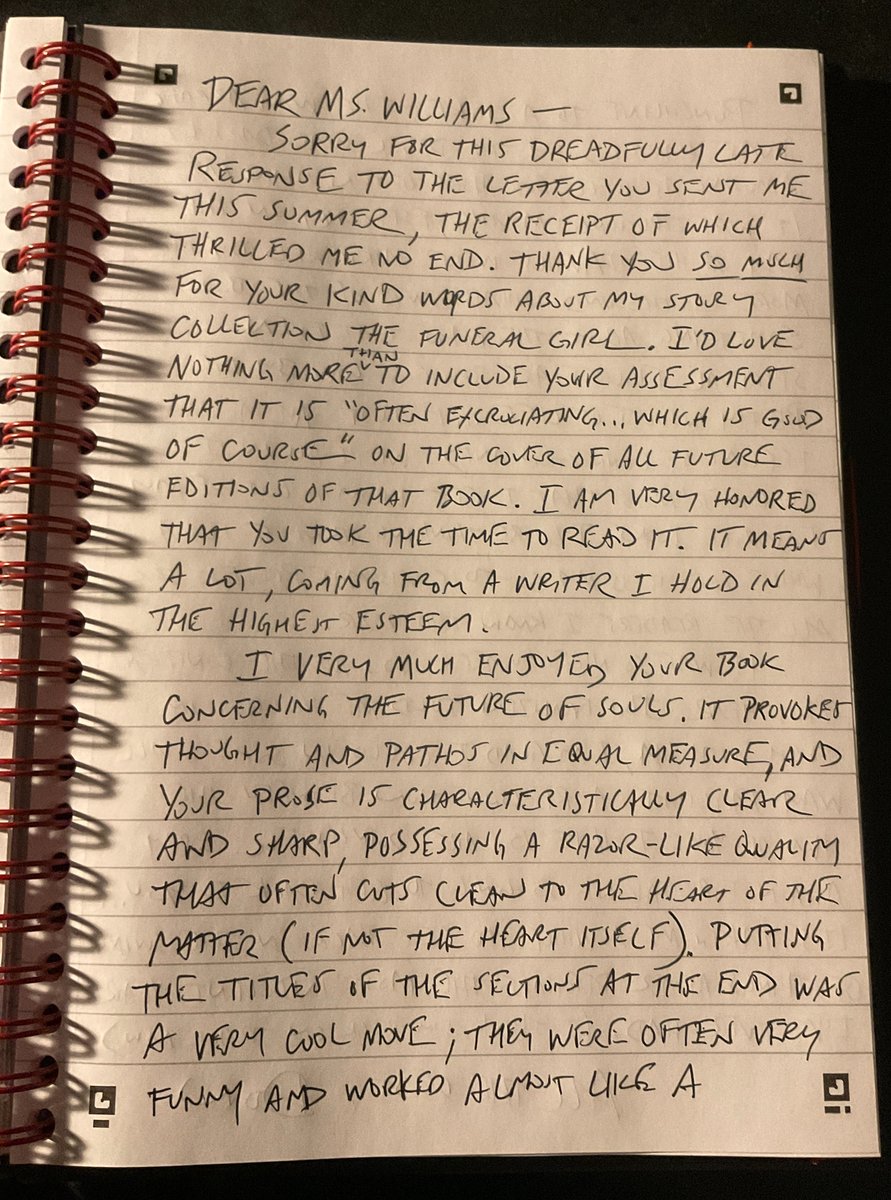 DEAR MS. WILLIAMS —
SORRY FOR THIS DREADFULLY LATE
RESPONSE TO THE LETTER YOU SENT ME
THIS SUMMER, THE RECEIPT OF WHICH
THRILLED ME NO END. THANK YOU SO MUCH
FOR YOUR KIND WORDS ABOUT MY STORY
COLLECTION THE FUNERAL GIRL. I'D LOVE
NOTHING MORE THAN TO INCLUDE YOUR ASSESSMENT
THAT IT IS "OFTEN EXCRUCIATING... WHICH IS GOOD
OF COURSE" ON THE COVER OF ALL FUTURE
EDITIONS OF THAT BOOK. I AM VERY HONORED
THAT YOU TOOK THE TIME TO READ IT. IT MEANS
A LOT, COMING FROM A WRITER I HOLD IN
THE HIGHEST ESTEEM.
I VERY MUCH ENJOYED YOUR BOOK
CONCERNING THE FUTURE OF SOULS. IT PROVOKES
THOUGHT AND PATHOS IN EQUAL MEASURE, AND
YOUR PROSE IS CHARACTERISTICALLY CLEAR
AND SHARP, POSSESSING A RAZOR-LIKE QUALITY
THAT OFTEN CUTS CLEAN TO THE HEART OF THE
MATTER (IF NOT THE HEART ITSELF). PUTTING
THE TITLES OF THE SECTIONS AT THE END WAS
A VERY COOL MOVE; THEY WERE OFTEN VERY
FUNNY AND WORKED ALMOST LIKE A